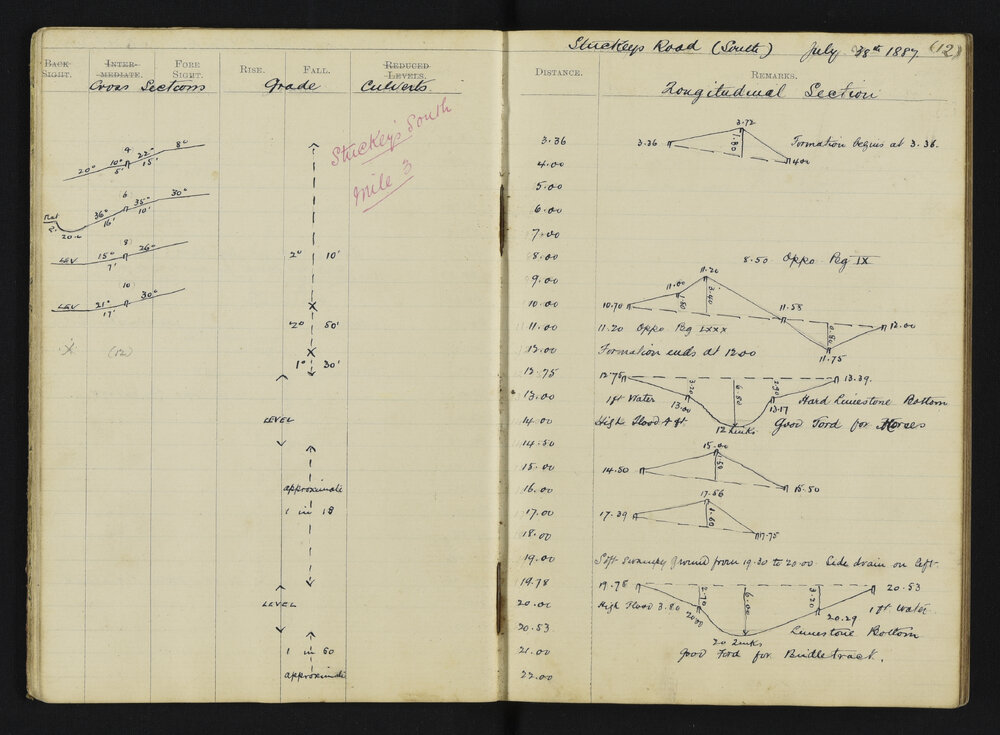 Stuckeys Road (South) July 28th 1887. (12)
BACK SIGHT. INTER-MEDIATE. FORE SIGHT. RISE. FALL. REDUCED LEVELS.
Cross Sections Grade Culverts
Stuckeys South
Mile 3
20° 10° 4 22° 8°
5' 15'
6 30°
Flat 36° 35°
20.0 16' 10'
8
LEV 15° 26°
7'
10
LEV 21° 30°
17'
X (12)
2° 10'
X
2° 50'
X
1° 30'
LEVEL
approximate
1 in 18
LEVEL
1 in 60
approximate
DISTANCE. REMARKS.
Longitudinal Section
3.36 3.36 3.72 1.80 4.00 Formation begins at 3.36.
4.00
5.00
6.00
7.00
8.00 8.50 Oppo Peg IX
9.00 11.20
10.00 10.70 11.00 1.80 3.40 11.58
11.00 11.20 Oppo Peg LXXX 0.80 12.00
12.00 Formation ends at 12.00 11.75
12.75 12.75 3.20 6.80 2.90 13.39.
13.00 1 ft Water 13.00 13.17 Hard Limestone Bottom
14.00 High Flood 4 ft 12 Links Good Ford for Horses
14.50 15.00
15.00 14.50 1.50
16.00 15.50
17.00 17.39 17.56 1.60
18.00 17.75
19.00 Soft swampy ground from 19.30 to 20.00. Side drain on left.
19.78 19.78 2.70 6.00 3.20 20.53
20.00 High Flood 3.80 20.29 1 ft Water
20.53 20 Links Limestone Bottom
21.00 Good Ford for Bridle track.
22.00